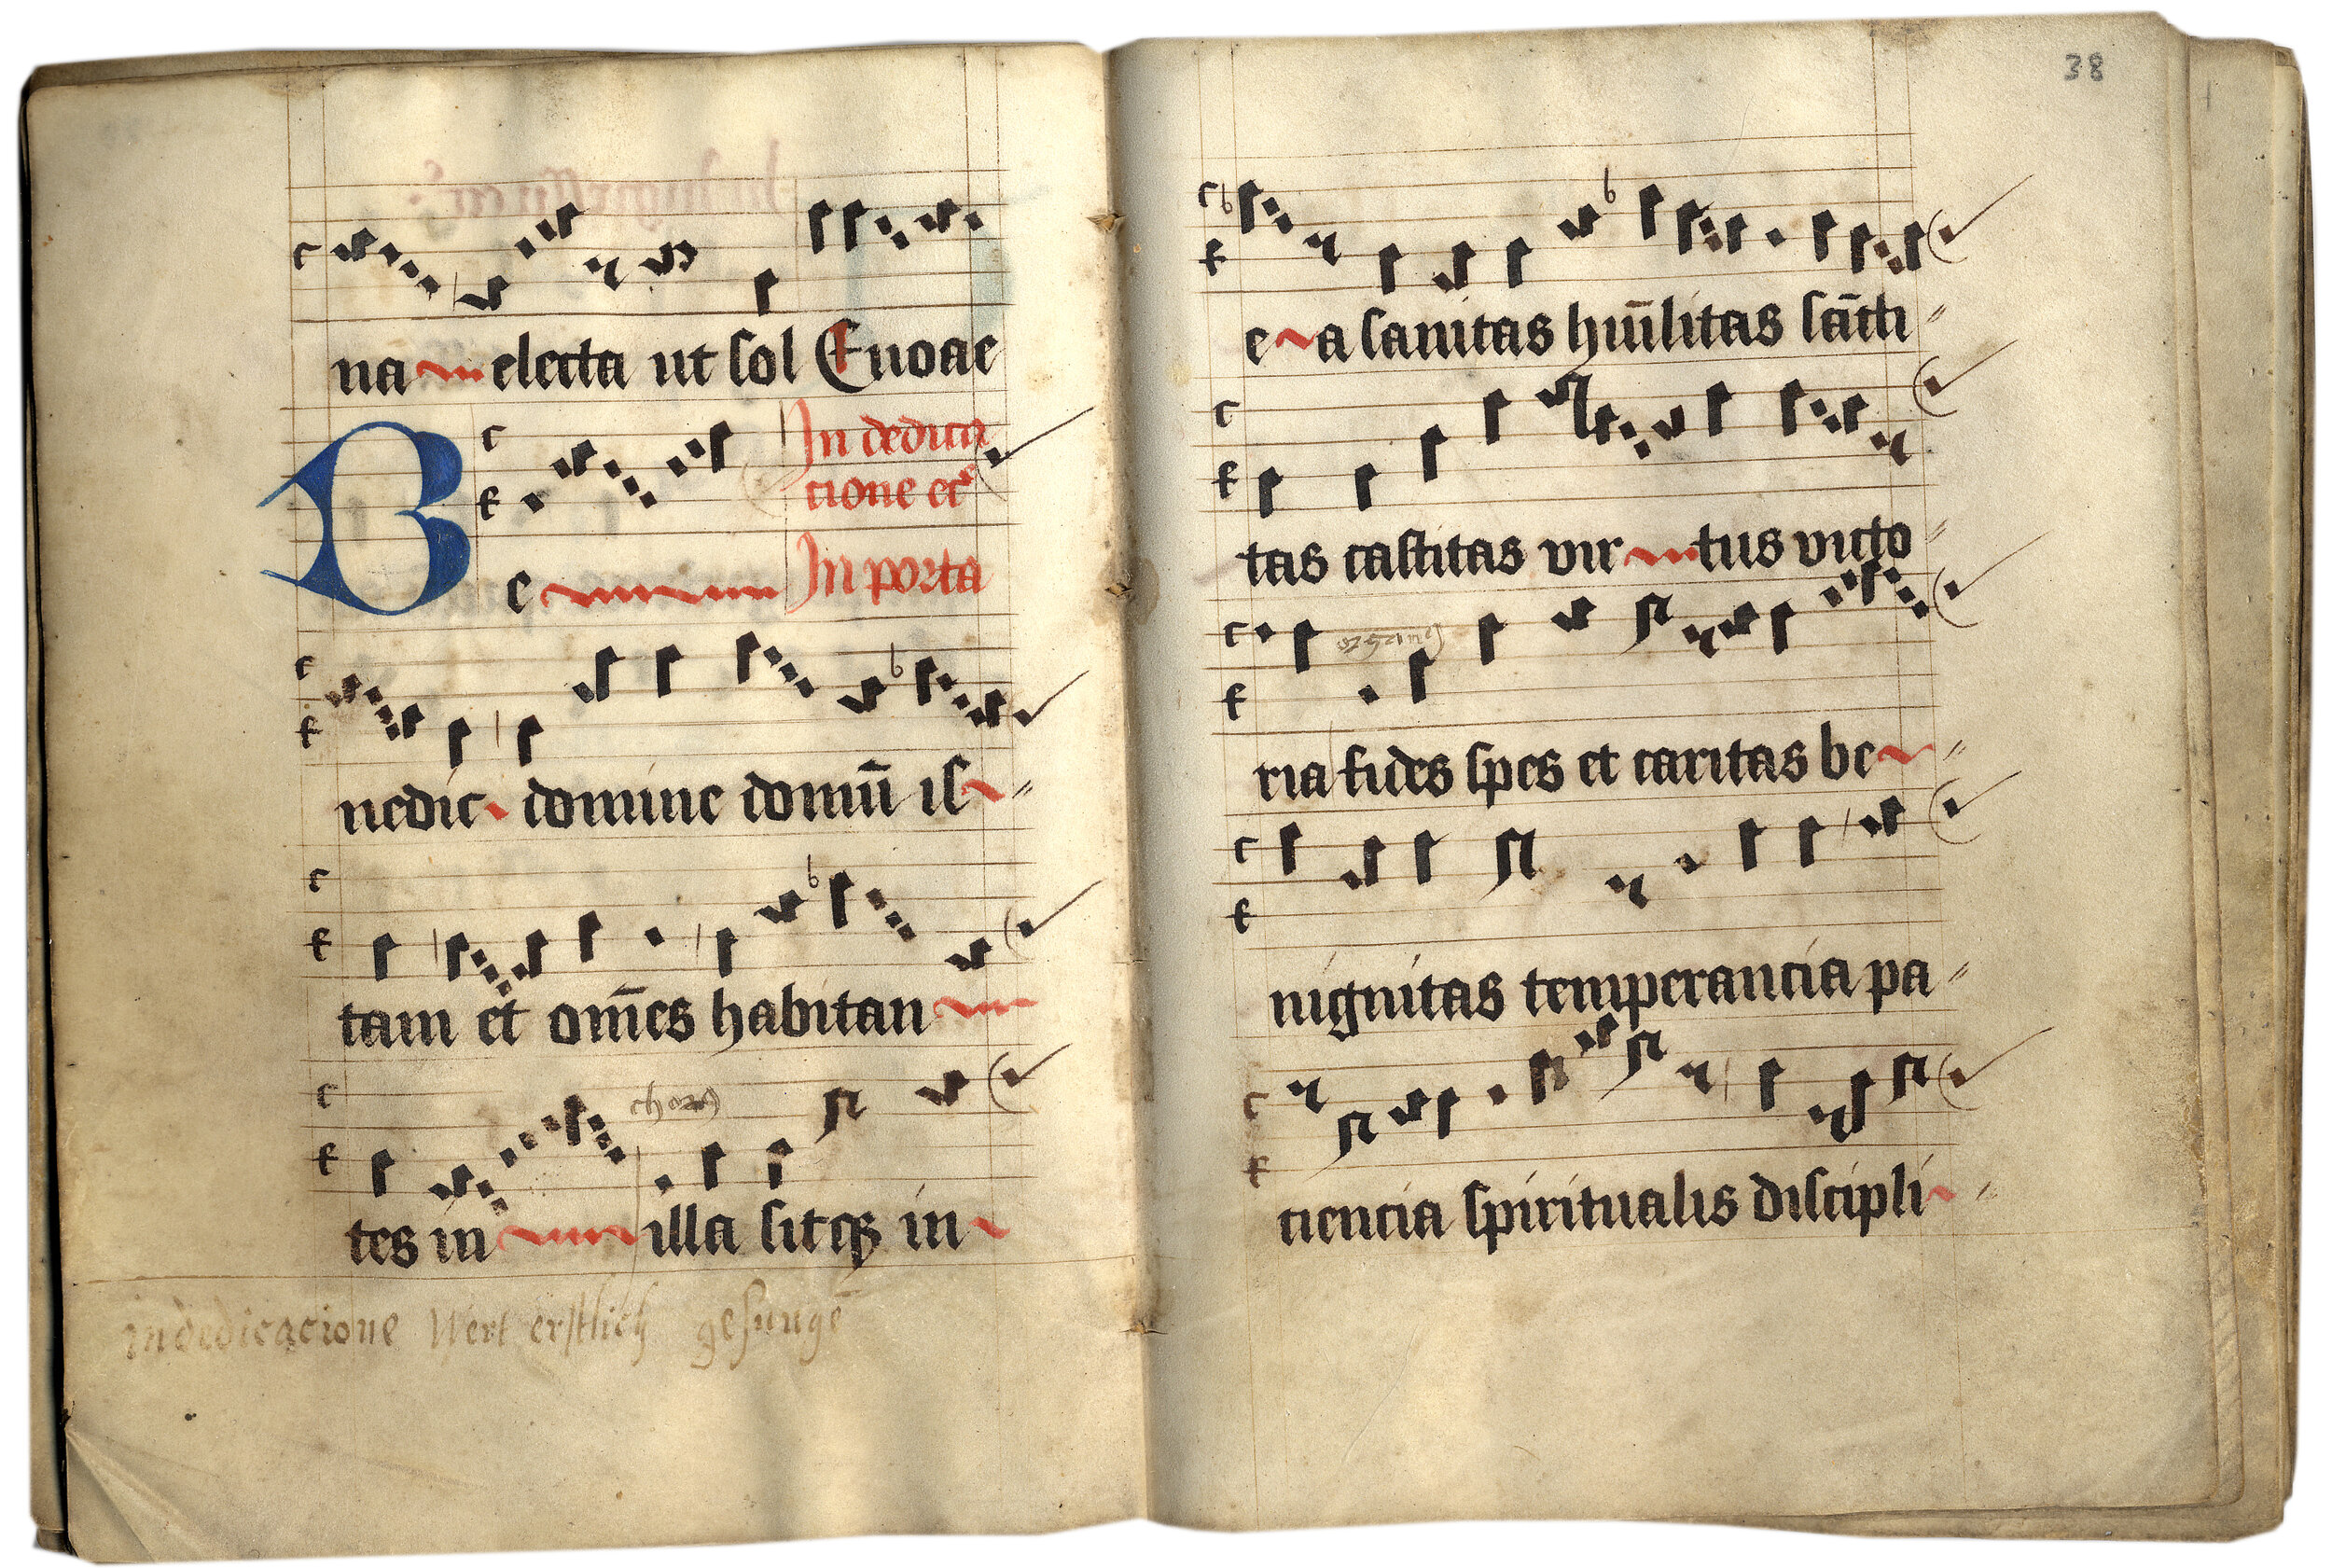 na electa ut sol Euoae
B
In dedica
cione ecc̄
e In porta
nedic domine domū iſ
tam et om̄es habitan
chorꝰ
tes in illa ſitqꝫ in
in dedicacione Wert erſtlich geſungē
38
e a ſanitas hūilitas ſācti
tas caſtitas vir tus victo
ria fides ſpes et caritas be
nignitas temperancia pa
ciencia ſpiritualis diſcipli